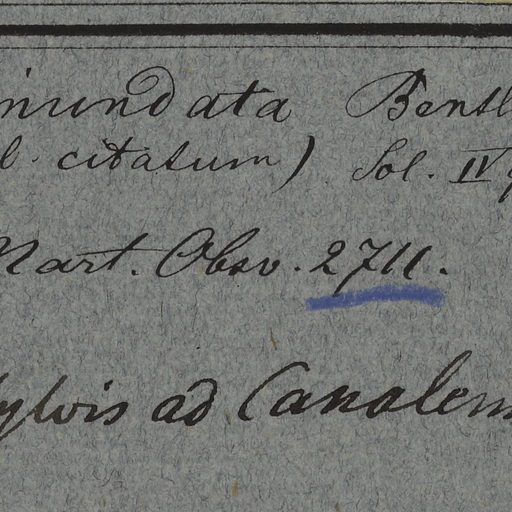 inundata Benth
l. citatum) Sol. IV
Mart. Obsv. 2711.
Sylvis ad Canalem